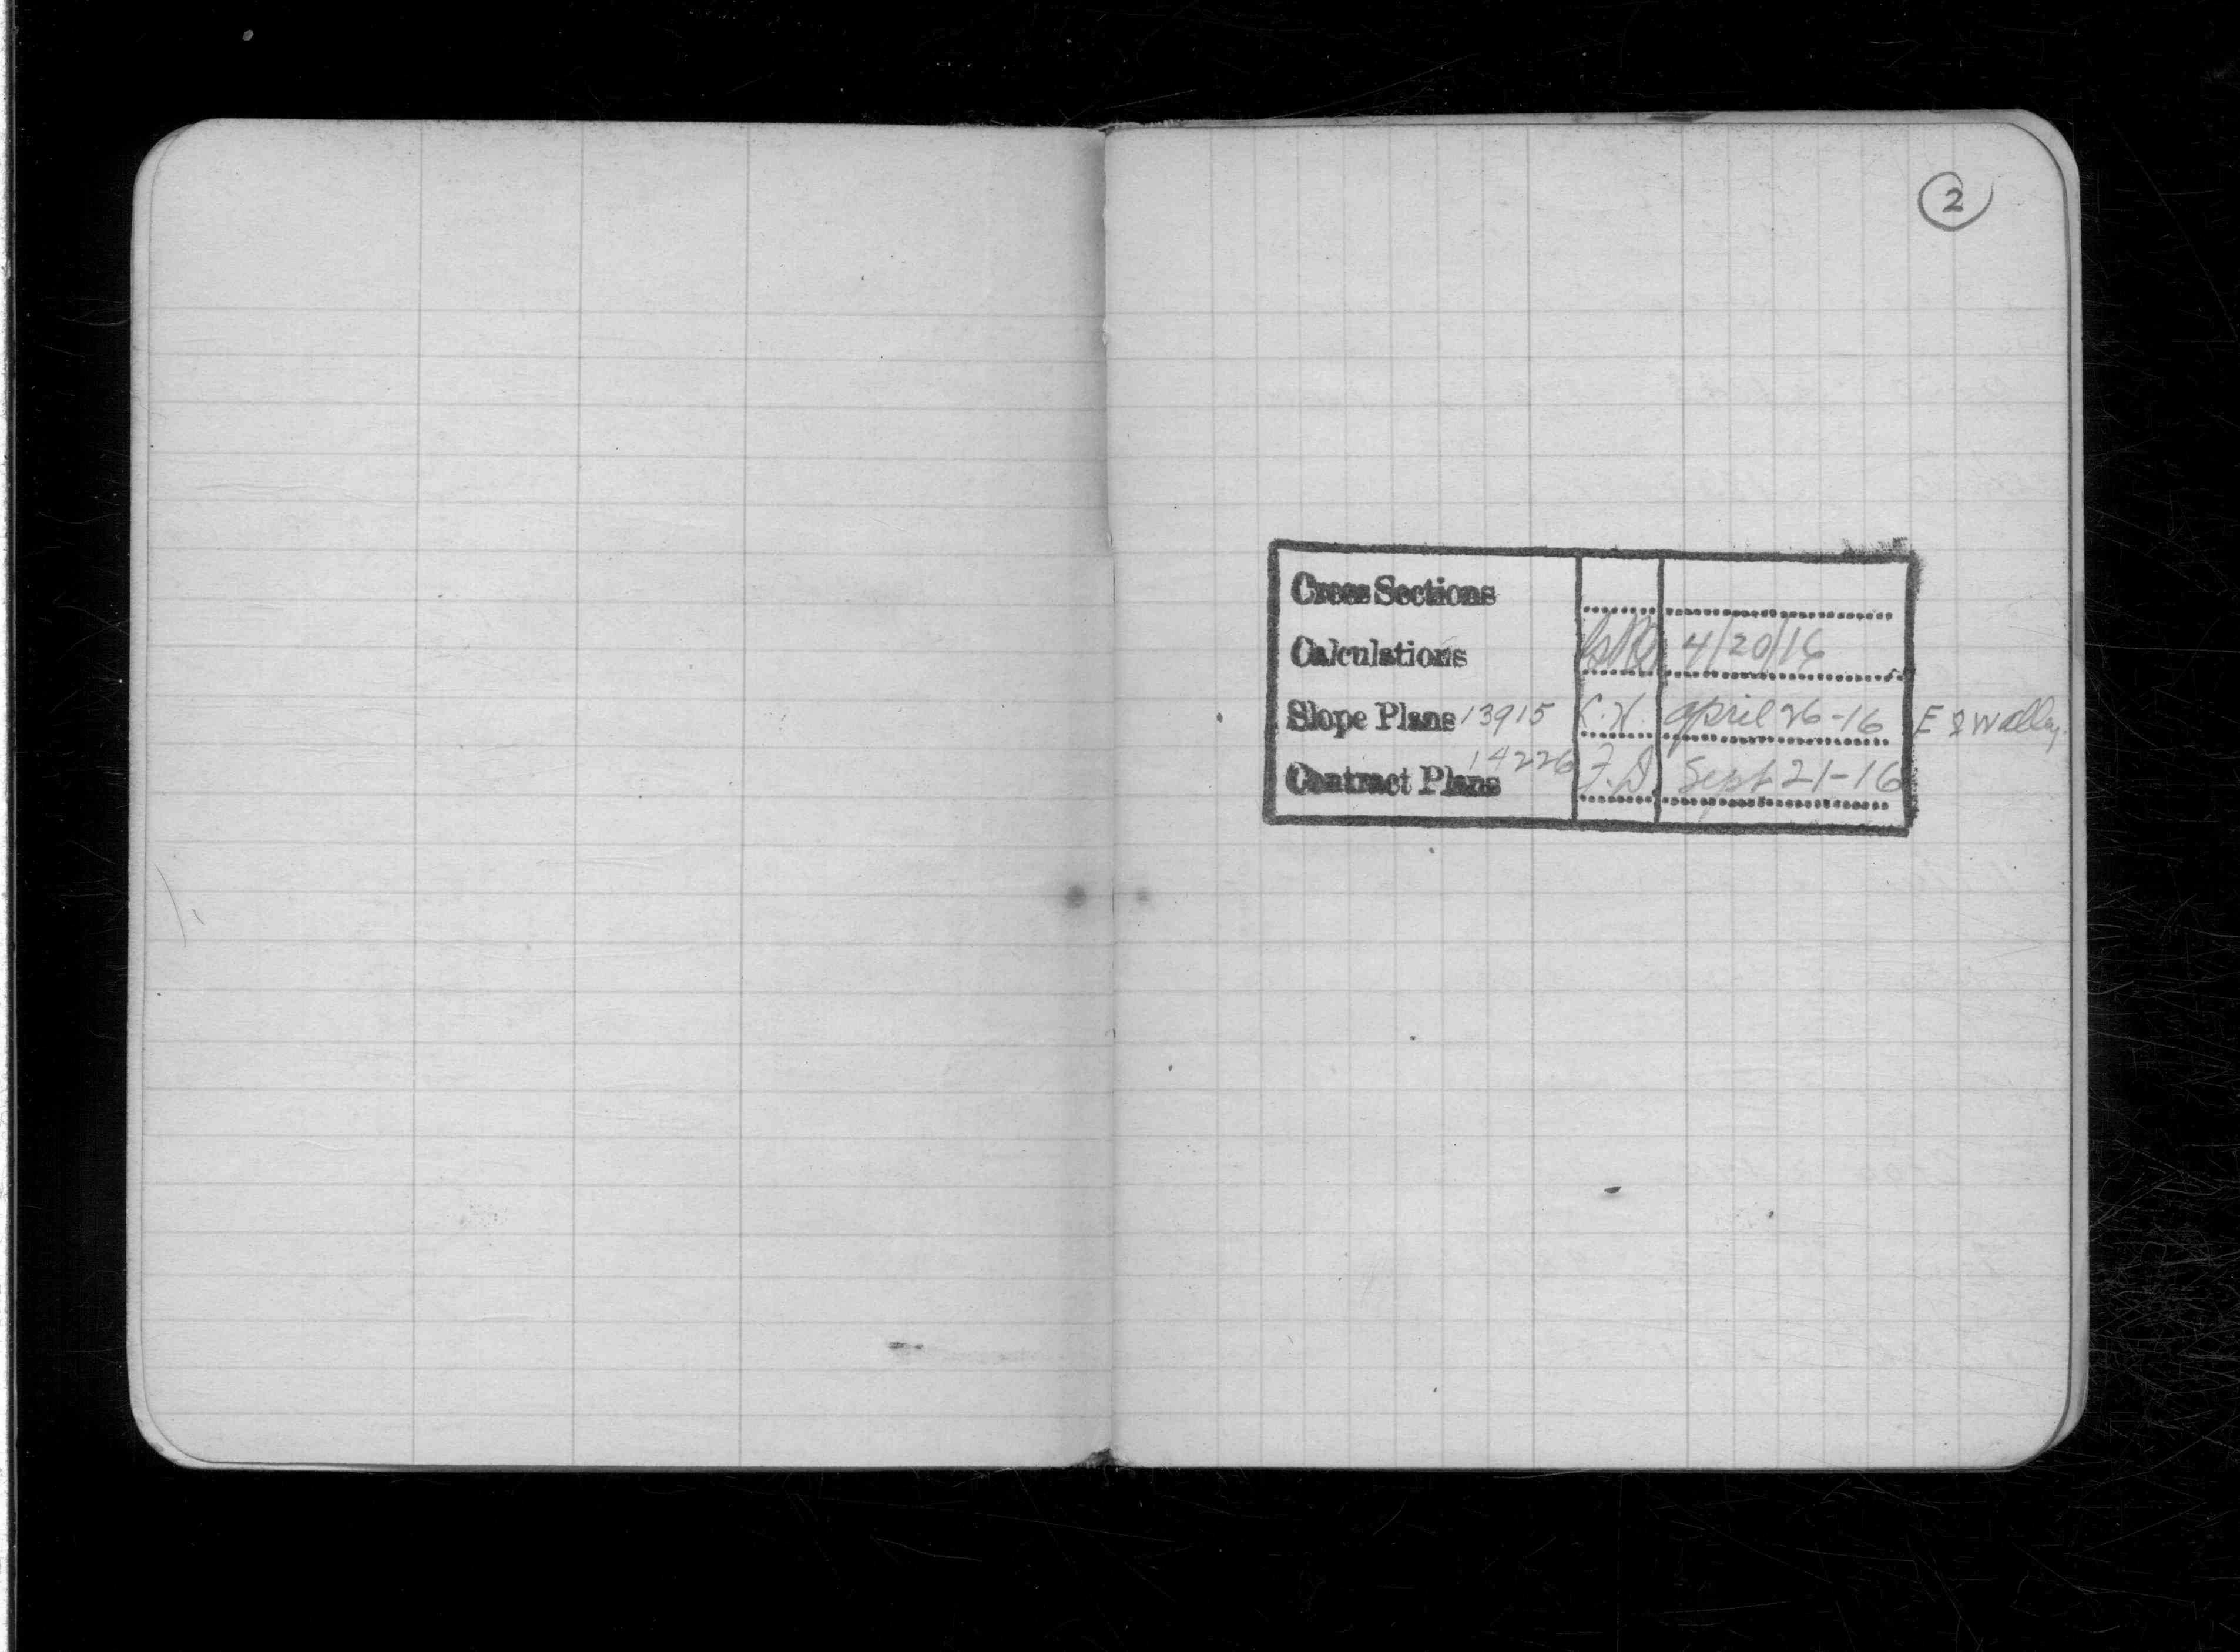 2
Cross Sections
Calculations 4/20/16
Slope Plans 13915 K.H. April 26-16 E & W alley
Contract Plans 14226 F.D. Sept 21-16